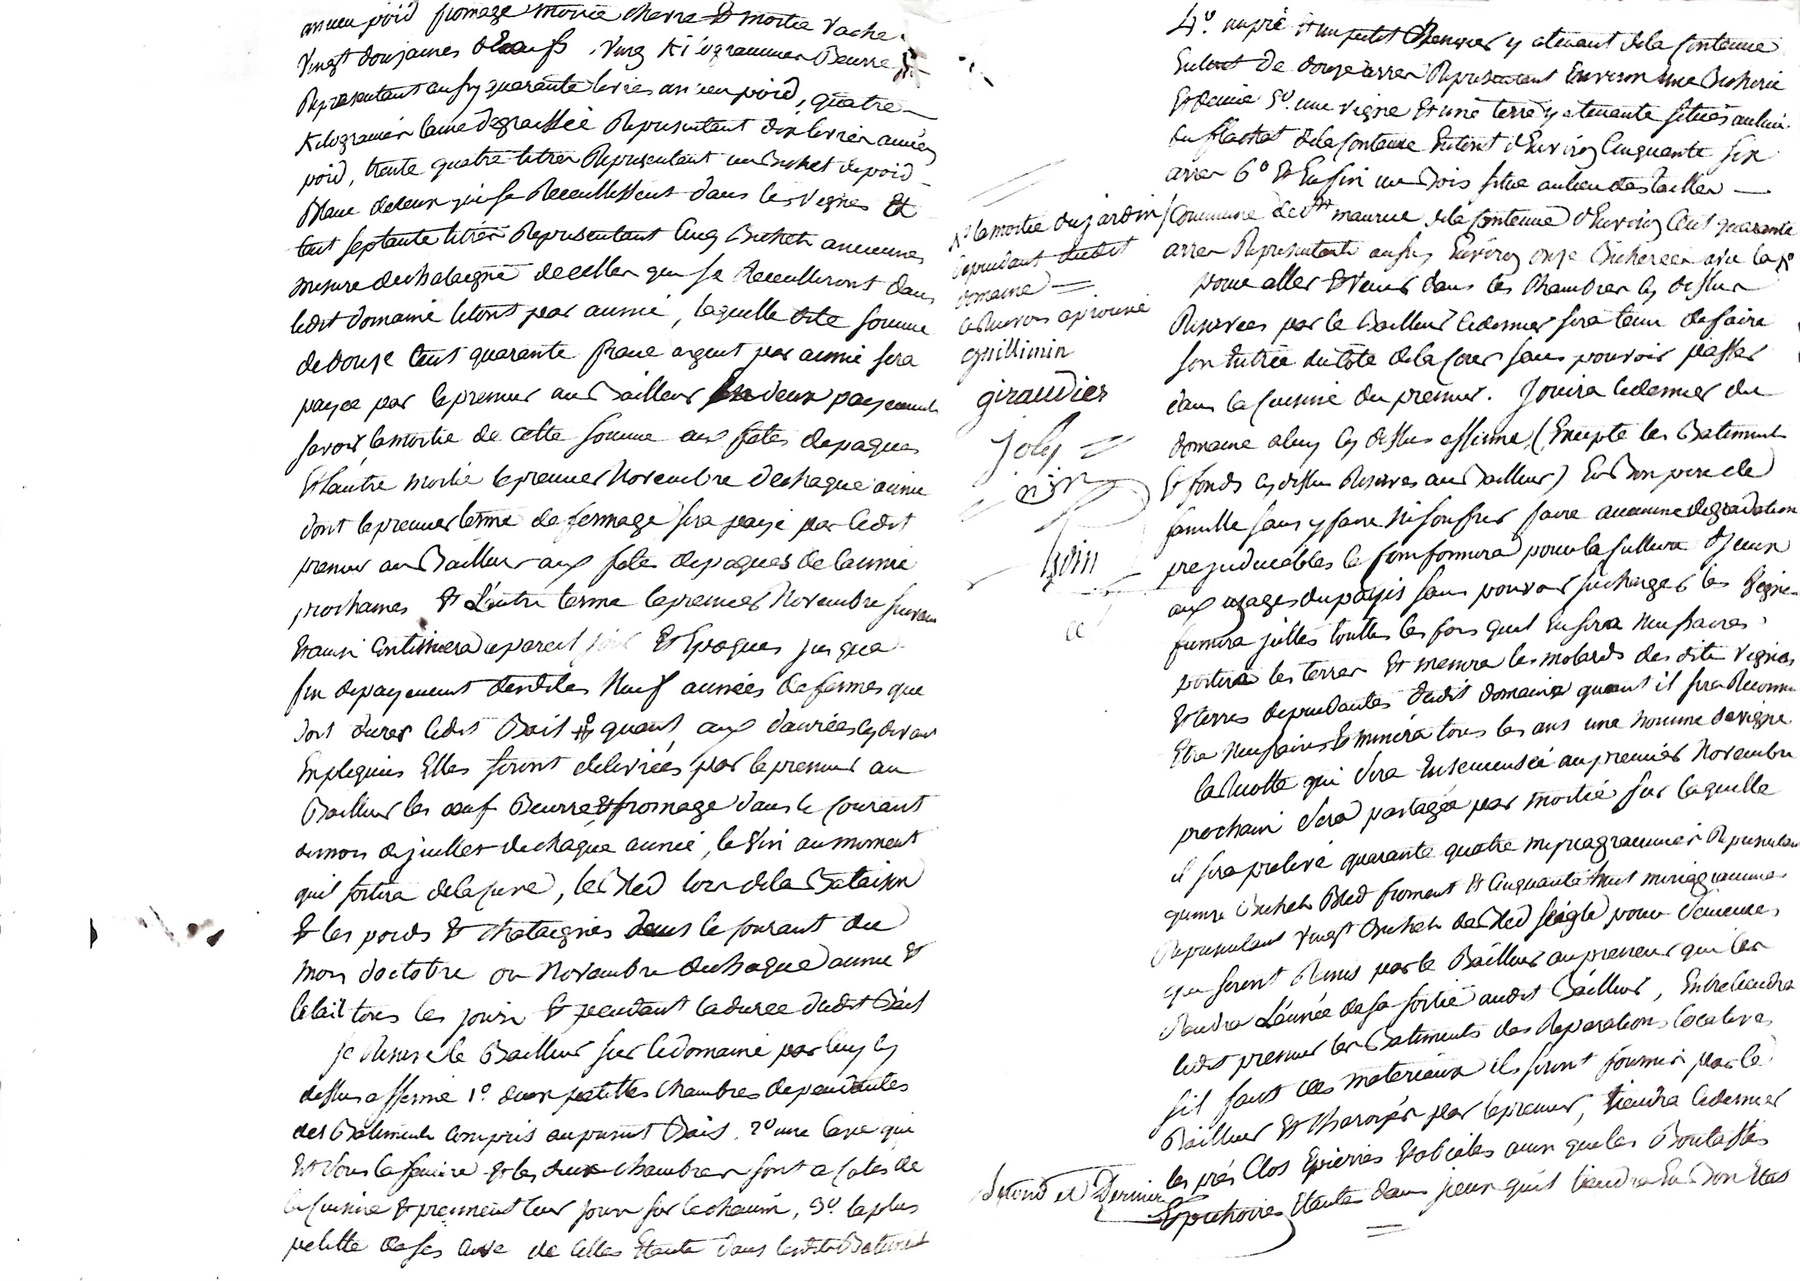 ancien poid fromage moitié chevre & moitié vache
vingt doujaines d'Œeufs, vingt kilogrammes Beurre
Representant aussy quarante livres ancien poid, quatre
Kilogrames laine degraissée Representant dix livres ancien
poid, trente quatre litres Representant un Bichet de poid
Blanc de ceux qui se Receuillissent dans les vignes Et
Cent septante litres Representant Cinq Bichets anciennes
mesure de chataigne de celles que se Receulleront dans
ledit domaine le tout par année, laquelle dite somme
de douze Cent quarante franc argent par année sera
payée par le preneur au Bailleur En deux payements
savoir la moitié de cette somme aux fetes de paques
Et l'autre moitié le premier Novembre de chaque année
dont le premier terme de fermage sera payé par ledit
preneur au Bailleur aux fetes de paques de l'année
prochaines & L'autre terme le premier Novembre suivan
Et ainsi Continuera a pareil jour Et Epoques jus qua
fin de payement desdites Neuf années de fermes que
doit durer ledit Bail & quant aux danrées cy devant
Expliquées Elles seront delivrées par le preneur au
Bailleur les œuf Beurre & fromage dans le courant
du mois de juillet de chaque année, le Vin au moment
quil sortira de la cuve, le Bled lors de la Bataison
& les poids & chataignes dans le courant du
mois doctobre ou Novembre de chaque année &
le lait tous les jours & pendant la durée dudit Bail
Se Reserve le Bailleur sur le domaine par luy cy
dessus affermé 1° deux petittes chambres dependantes
des Batiments compris au present Bail, 2° une cave qui
Est sous la & les deux chambres sont a cotés de
la Cuisine & prennent leur jour sur le chemin, 3° la plus
petitte de ses Cuve de celles Etante dans lesdits Batiment
4° un pré & un petit Chenevier y atenant de la contenue
En tout de douze arres Representant Environ une Bicherée
Et demie 5° une vigne Et une terre y atenante situés au lieu
du de la contenue En tout d'Environ Cinquante six
arres 6° & En fin un Bois situé au lieu des tailles
Commune de St maurice de la contenue d'Environ Cent quarante
arres Representants aussy Environ onze Bicherées avec la
pour aller & venir dans les Chambres cy dessus
Reservées par le Bailleur ce dernier sera tenu de faire
son Entrée du coté de la Cour sans pouvoir passer
dans la Cuisine du preneur. Jouira ce dernier du
domaine a luy cy dessus affermé (Excepté les Batiments
& fonds cy dessus Reservés au Bailleur) En Bon pere de
famille sans y faire Ni souffrir faire aucunne degradation
prejudiciables se Comformera pour la Culture d'Jceux
aux usages du payis sans pouvoir surcharger les Vignes
fumera jcelles touttes les fois quil En sera Nessaires
portera les terres Et menera les molards des dite vignes
Et terres dependantes dudit domaine quant il sera Reconnu
Etre Nessaires & minéra tous les ans une hommée de vigne
la Recolte qui sera Ensemensée au premier Novembre
prochain sera partagée par moitié sur laquelle
il sera prelevé quarante quatre miriagrammes Representan
quinze Bichets Bled froment Et Cinquante huit miriagrammes
Representant vingt Bichets de Bled seigle pour semences
qui seront Remis par le Bailleur au preneur qui les
Rendra L'année de sa sortie audit Bailleur, Entretiendra
ledit preneur les Batiments des Reparations locatives
sil faut des materiaux ils seront fournis par le
Bailleur Et Charoyés par le preneur, tiendra ce dernier
les prés Clos Epierrés ainsi que les Boutasses
Etante dans jceux qu'il tiendra En Bon Etas
la moitié du jardin
dependant dudit
domaine
le Renvois aprouvé
guillimin
giraudier
joly
Second et Dernier